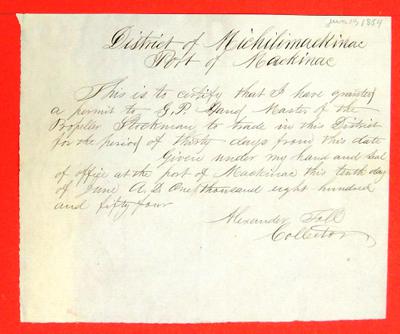 June 13 1854
District of Michilimackinac
Port of Mackinac
This is to certify that I have granted
a permit to G. P. Master of the
Propeller Stockman to trade in this District
for the period of thirty days from this date
Given under my hand and Seal
of office at the port of Mackinac this tenth day
of June A. D. One thousand eight hundred
and fifty four
Alexander Toll
Collector